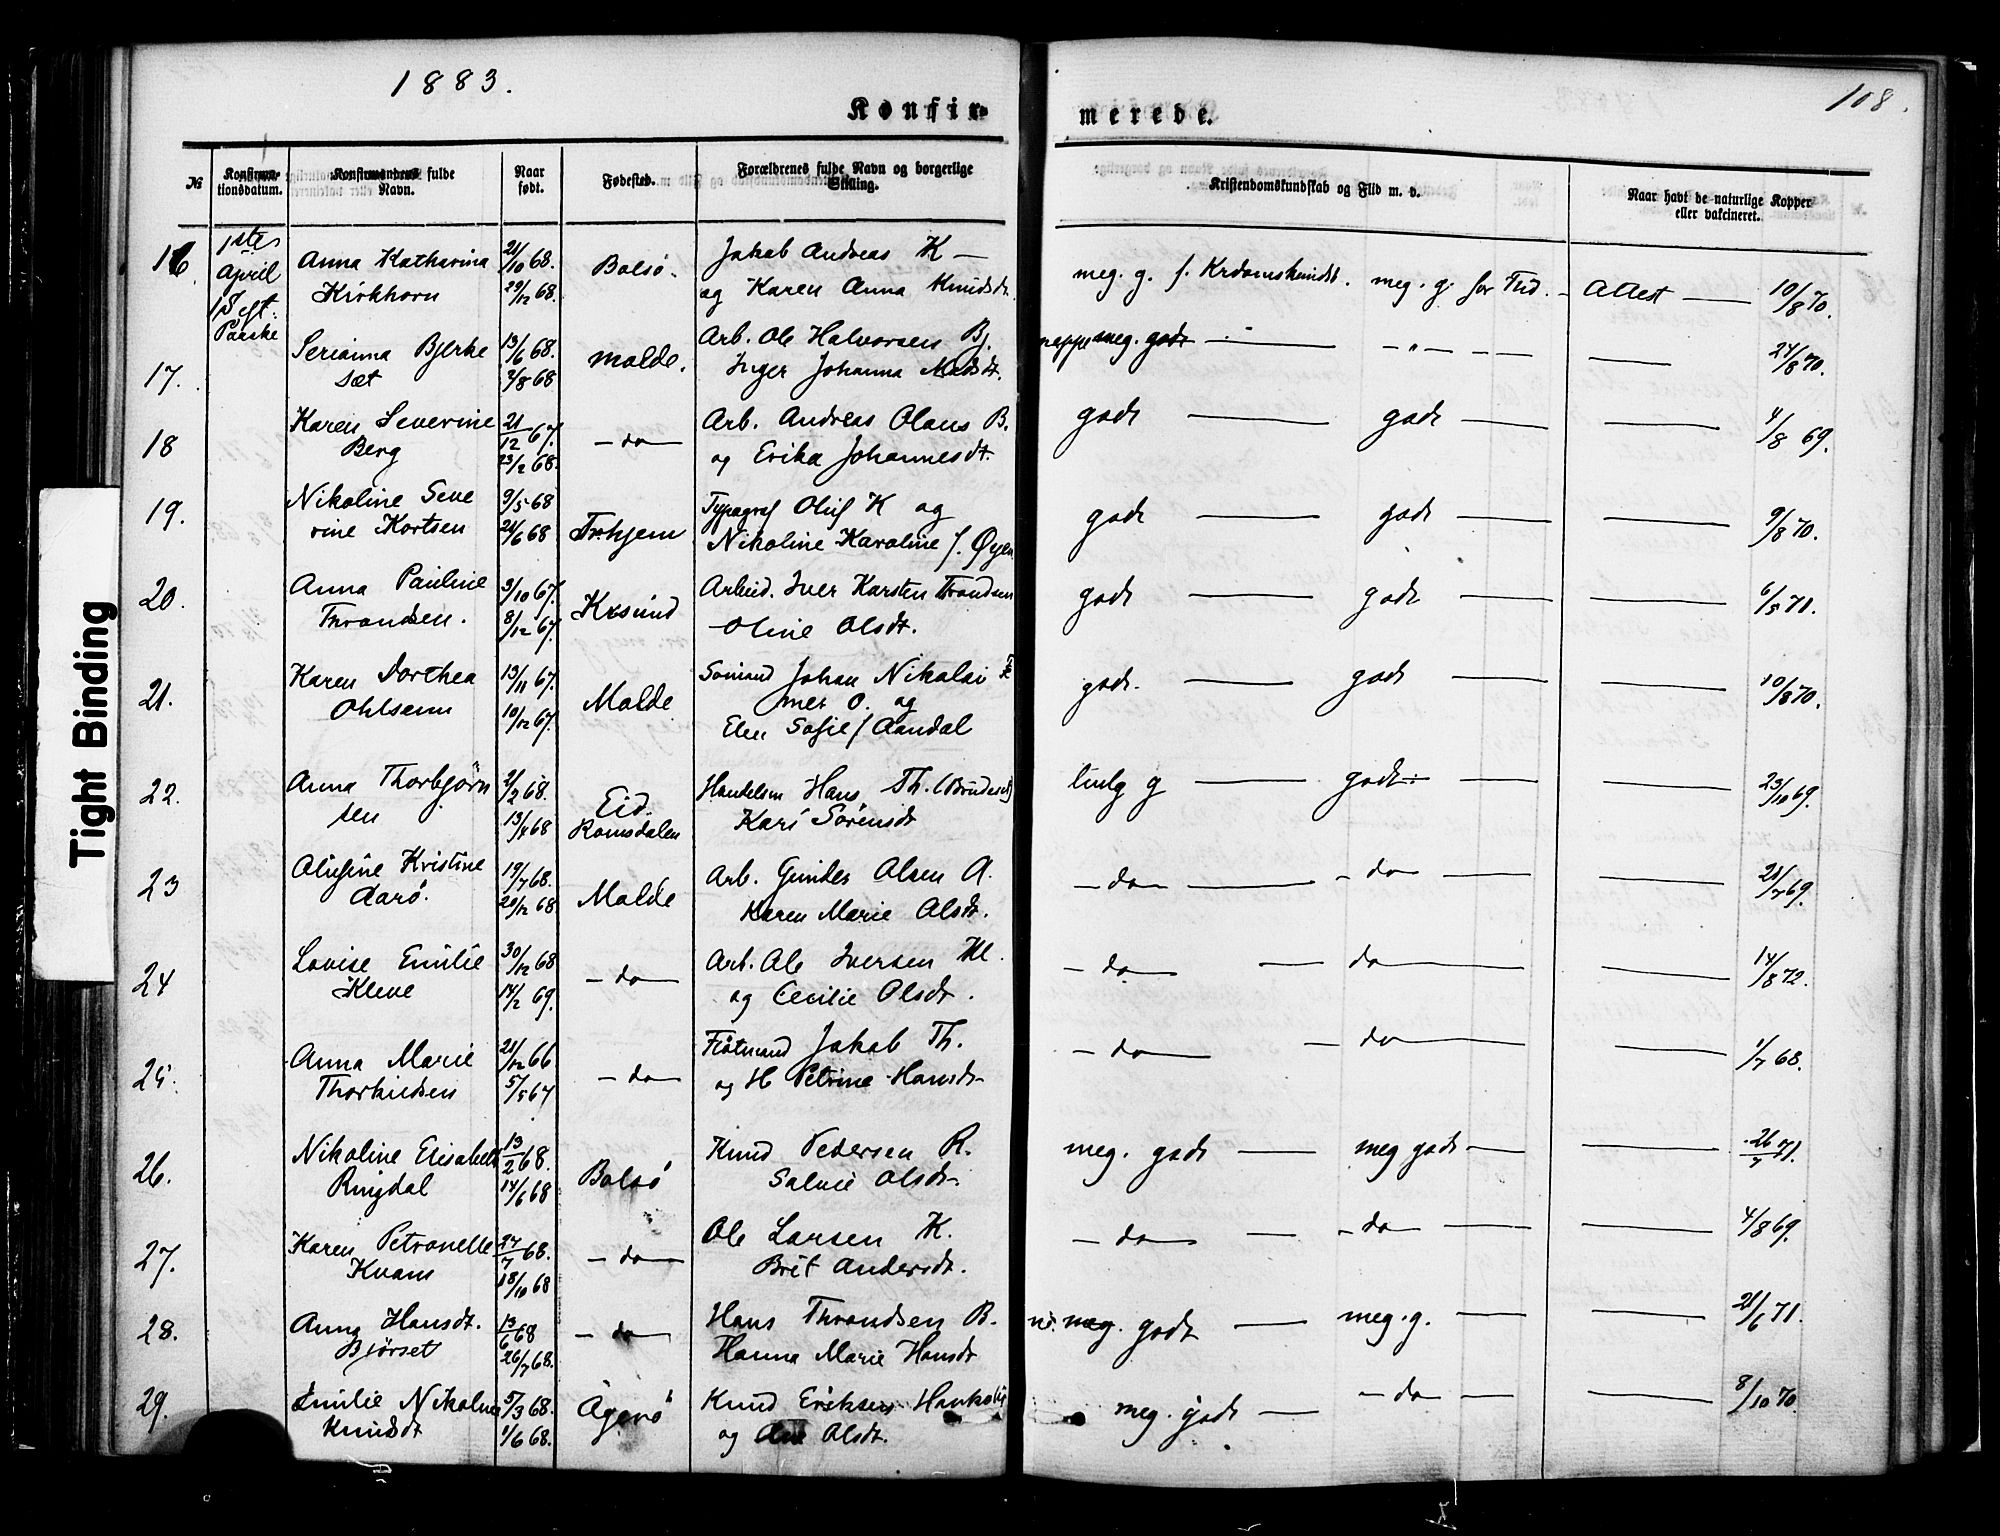 1883.
108.
Konfir-
merede.
№
Konfirma-
tionsdatum.
Konfirmandens fulde
Navn.
Naar
født.
Fødested.
Forældrenes fulde Navn og borgerlige
Stilling.
Kristendomskundskab og Flid m. v.
Naar havt de naturlige Kopper
eller vakcineret.
16. 1ste April 1 Søgt: Paaske Anna Katharina 21/10 68. Bolsø. Jakob Andreas K — meg. g. f. Krdomskundsk. meg. g. for Flid. — Attest — 10/8 70.
Kirkhorn 29/12 68. og Karen Anna Knudsdt.
17. Serianna Bjerke 13/6 68. Molde. Arb. Ole Halvorsen Bj. neppe meg. godt — — " — — 24/8 70.
sæt 2/8 68 Inger Johanna Madsdt.
18 Karen Severine 21/12 67. — do — Arb. Andreas Olaus B. godt — godt — 4/8 69.
Berg 23/2 68. og Erika Johannesdt.
19. Nikoline Seve 9/5 68 Trhjem Typograf Oluf K og godt — godt — 9/8 70.
rine Kortsen 21/6 68 Nikoline Karoline f. Øyen
20. Anna Pauline 3/10 67. Krsund Arbeid. Iver Karsten Trondsen godt — godt — 6/5 71.
Throndsen. 8/12 67. Oline Olsdt.
21. Karen Dorthea 13/11 67. Molde Sømand Johan Nikolai godt. — godt — 10/8 70.
Ohlsenn 10/12 67. mer O. og
Elen Sofie f Aandal
22. Anna Thorbjørn 21/2 68. Eid. Handelsm Hans Th. — godt — 23/10 69.
sen 13/4 68 Romsdalen Kari Sørensdt
23 Olufine Kristine 19/7 68. Molde Arb. Gunder Olsen A. — do — — do — 21/7 69.
Aarø. 20/12 68 Karen Marie Olsdt.
24 Lovise Emilie 30/12 68 — do — Arb. Ole Iversen Kl. — do — do — 14/8 72.
Kleve 14/2 69. og Cecilie Olsdt.
25. Anna Marie 21/12 66 — do — Fløtmand Jakob Th. — do — — do — 1/7 68.
Thorkildsen 5/5 67 og H Petrine Hansdt-
26. Nikoline Elisabeth 13/2 68. Bolsø Knud Pedersen R. meg. godt — meg godt — 26/7 71.
Ringdal 14/6 68 Salvie Olsdt-
27. Karen Petronelle 27/7 68. — do — Ole Larsen K. — do — — do — 4/8 69.
Kvam 18/10 68 Brit Andersdt.
28. Anna Hansdt. 13/6 68 — do — Hans Throndsen B. meg. godt — meg. g. — 21/6 71.
Bjørset 26/7 68. Hanna Marie Hansdt
29. Emilie Nikoline 5/3 68. Agerø Knud Eriksen meg. godt — — do — 8/10 70.
Knudsdt 1/6 68. og Ane Olsdt.
Tight Binding